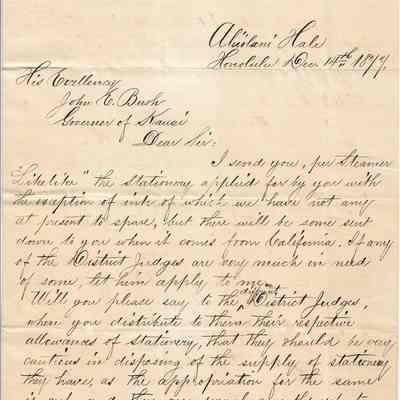 Aliiolani Hale
Honolulu Dec 14th 1877,
His Excellency
John E. Bush
Governor of Kauai
Dear Sir:
I send you, per Steamer
"Likelike" the Stationery applied for by you with
the exception of ink of which we have not any
at present to spare, but there will be some sent
down to you when it comes from California. If any
of the District Judges are very much in need
of some, let him apply to me.
Will you please say to the different District Judges,
when you distribute to them their respective
allowances of stationery, that they should be very
cautious in disposing of the supply of stationery
they have, as the appropriation for the same
is